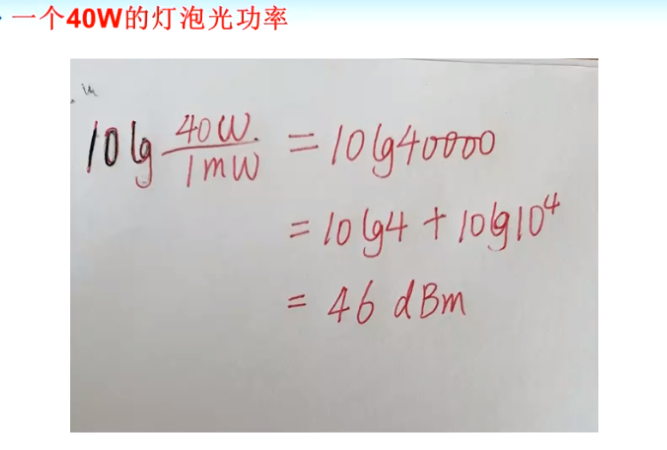 一个40W的灯泡光功率
10lg 40W. / 1mW = 10lg40000
= 10lg4 + 10lg10⁴
= 46 dBm